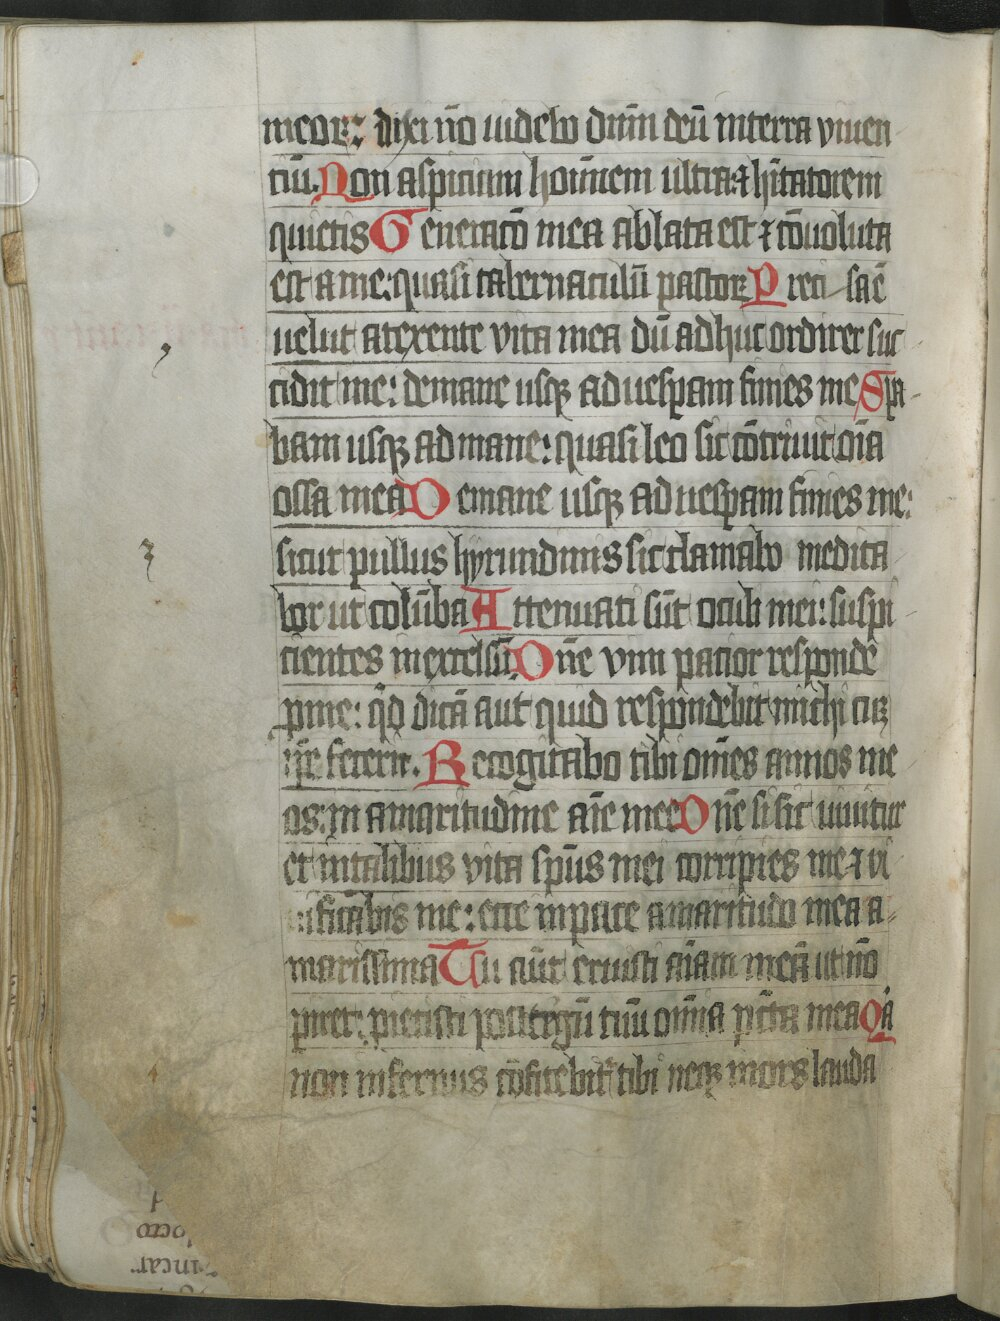 meoꝝ: dixi nō uidebo dūm deū in terra viuen
ciū. Non aspiciam hoīnem ultra ⁊ hītatorem
quietis Generatō mea ablata est ⁊ cōuoluta
est a me: quasi tabernaculū pastoꝝ Preci saē
uelut a texente vita mea dū adhuc ordirer suc
cidit me: de mane usqꝫ ad uesꝑam finies me Sꝑa
bam usqꝫ ad mane: quasi leo sic cōtriuit oīa
ossa mea De mane usqꝫ ad uesꝑam finies me:
sicut pullus hyrundinis sic clamabo medita
bor ut colūba Attenuati sūt oculi mei: suspi
cientes in excelsū. Dn̄e vim pacior respondē
ꝓ me: qͥd dicā aut quid respondebit michi cū
ip̄e fecerit. Recogitabo tibi om̄es annos me
os: in amaritudine aīe mee Dn̄e si sic uiuitur
et in talibus vita sp̄us mei corripies me ⁊ vi
uificabis me: ecce in pace amaritudo mea a
marissima Tu aūt eruisti aīam meā ut nō
ꝑiret: proiecisti post tergū tuū omīa pctā mea Qͥa
non infernus cōfitebit᷑ tibi neqꝫ mors lauda